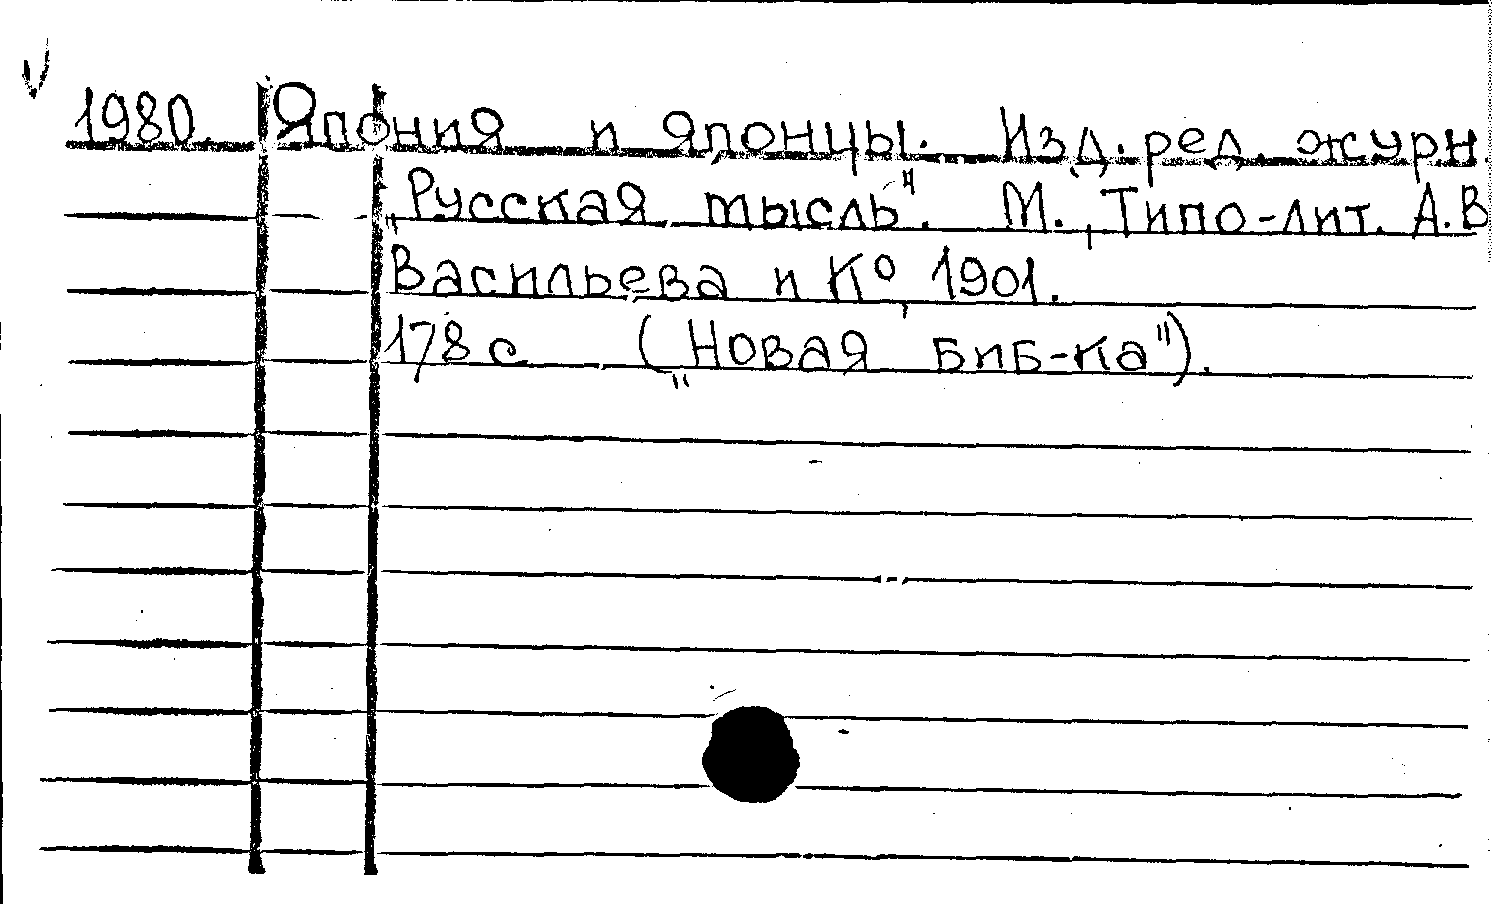 1980. Япония и японцы. Изд. ред. журн.
„Русская мысль". М., Типо-лит. А.В
Васильева и К⁰, 1901.
178 с („Новая биб-ка").